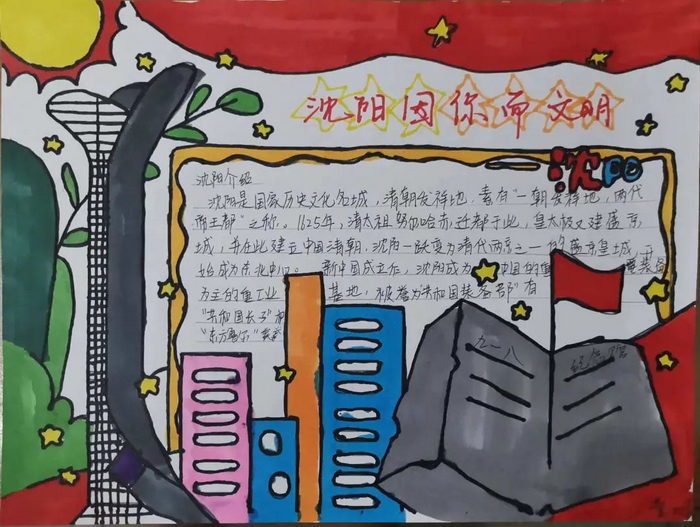 沈阳因你而文明
沈阳
沈阳介绍
沈阳是国家历史文化名城，清朝发祥地，素有"一朝发祥地，两代
帝王都"之称。1625年，清太祖努尔哈赤迁都于此，皇太极又建盛京
城，并在此建立中国清朝，沈阳一跃变为清代两京之一的盛京皇城，
始成为东北中心。新中国成立后，沈阳成为中国的重要装备
为主的重工业基地，被誉为共和国装备部"有
"共和国长子"和
"东方鲁尔"美誉
九一八
纪念馆